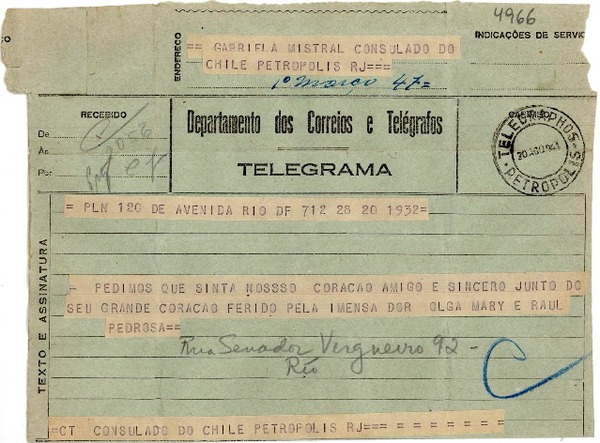 4966
INDICAÇÕES DE SERVIÇ
ENDEREÇO
== GABRIELA MISTRAL CONSULADO DO
CHILE PETROPOLIS RJ===
1º Março, 47=
RECEBIDO
De
Às
Por
Departamento dos Correios e Telégrafos
TELEGRAMA
TELEGRAPHOS
20 AGO 943
PETROPOLIS
= PLN 120 DE AVENIDA RIO DF 712 28 20 1932=
TEXTO E ASSINATURA
- PEDIMOS QUE SINTA NOSSSO CORACAO AMIGO E SINCERO JUNTO DO
SEU GRANDE CORACAO FERIDO PELA IMENSA DOR OLGA MARY E RAUL
PEDROSA==
Rua Senador Vergueiro 92 -
Rio
=CT CONSULADO DO CHILE PETROPOLIS RJ=== = = = = = = =